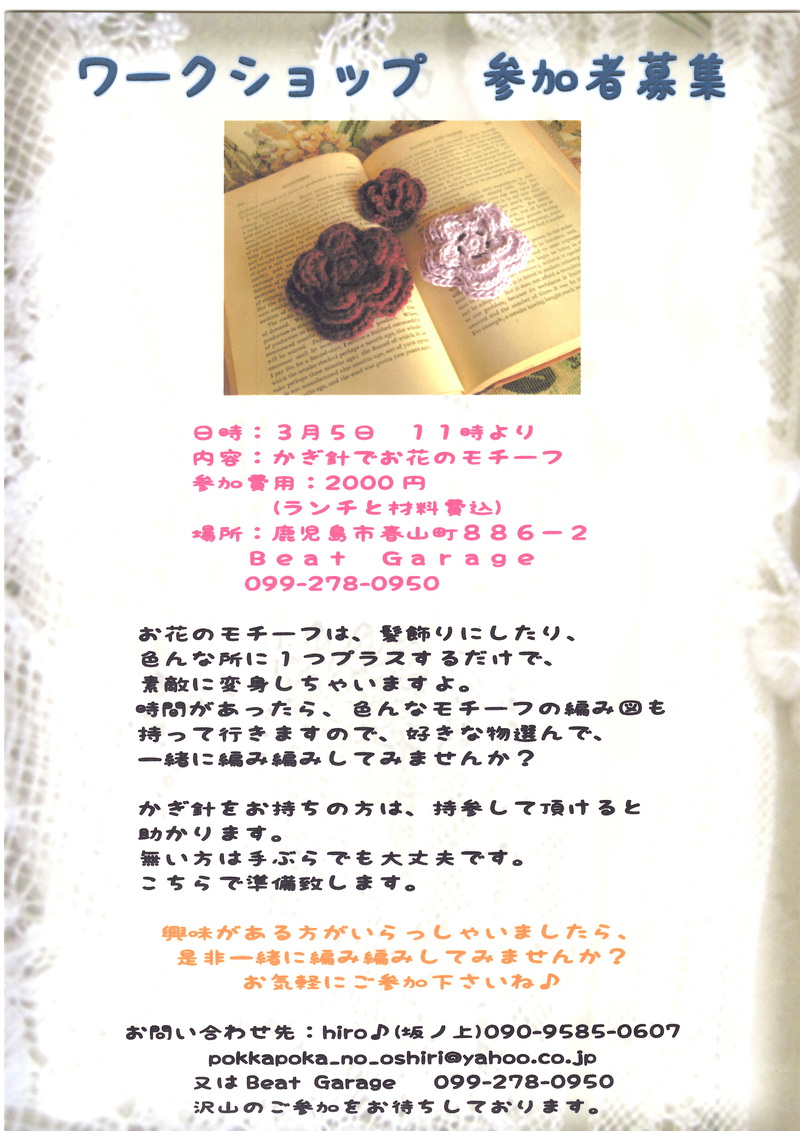 ワークショップ　参加者募集
日時：３月５日　１１時より
内容：かぎ針でお花のモチーフ
参加費用：2000円
(ランチと材料費込)
場所：鹿児島市春山町８８６－２
Ｂｅａｔ　Ｇａｒａｇｅ
099-278-0950
お花のモチーフは、髪飾りにしたり、
色んな所に１つプラスするだけで、
素敵に変身しちゃいますよ。
時間があったら、色んなモチーフの編み図も
持って行きますので、好きな物選んで、
一緒に編み編みしてみませんか？
かぎ針をお持ちの方は、持参して頂けると
助かります。
無い方は手ぶらでも大丈夫です。
こちらで準備致します。
興味がある方がいらっしゃいましたら、
是非一緒に編み編みしてみませんか？
お気軽にご参加下さいね♪
お問い合わせ先：hiro♪(坂ノ上)090-9585-0607
pokkapoka_no_oshiri@yahoo.co.jp
又はBeat Garage　099-278-0950
沢山のご参加をお待ちしております。